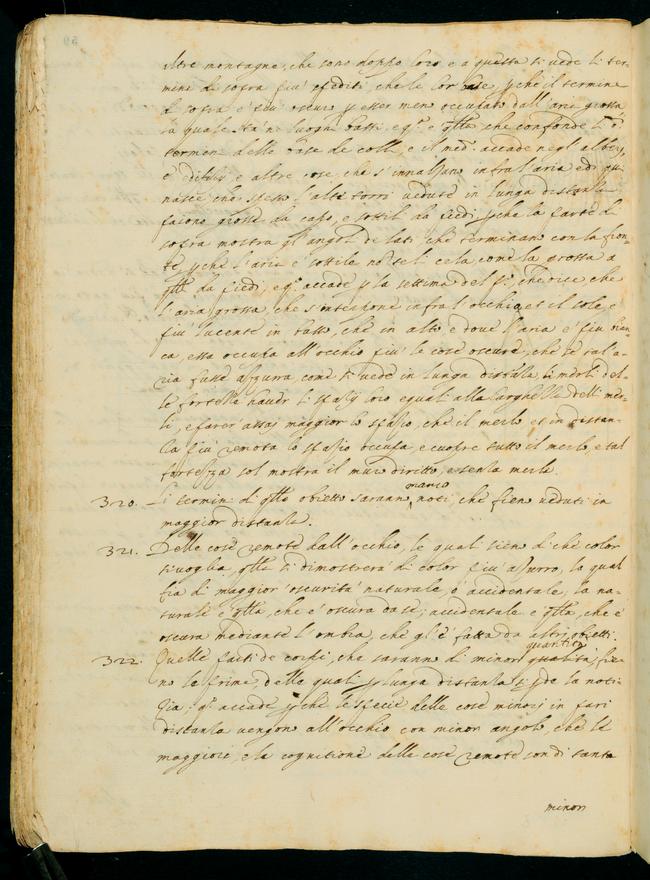 altre montagne, che sono doppo loro e a questa si vede li ter-
mini di sopra più espediti, che le lor base, p che il termine
di sopra è più oscuro p esser men occupato dall'aria grossa
la quale stà ne luoghi bassi, e q.o è q.lla che confonde li
termini delle base de colli, e il med.o accade negl'alberi,
e difitij e altre cose, che s'innalzano infra l'aria, e di qui
nasce che spesso l'alte torri vedute in lunga distantia
paiono grosse da capo, e sottili da piedi, p che la parte di
sopra mostra gl'angoli de lati, che terminano con la fron-
te, p che l'aria è sottile no te li cela come la grossa a
q.lli da piedi, e q.o accade p la settima del p.o, che dice che
l'aria grossa, che s'interpone infra l'occhio, et il sole, è
più lucente in basso, che in alto, e dove l'aria è più bian-
ca, essa occupa all'occhio più le cose oscure, che se tal'a-
ria fusse azzurra, come si vede in lunga distantia li merli del-
le fortezze haver li spatij loro equali alla larghezza delli mer-
li, e parer assai maggior lo spatio, che il merlo, et in distan-
tia più remota lo spatio occupa, e cuopre tutto il merlo, e tal
fortezza sol mostra il muro diritto, e senza merli.
320. Li termini di q.llo obietto saranno manco noti, che fien veduti in
maggior distantia.
321. Delle cose remote dall'occhio, le quali sien di che color
si voglia, q.lla si dimostrerà di color più azurro, la qual
fia di maggior oscurità naturale, ò accidentale, la na-
turale è q.lla, che è oscura da se; accidentale è q.lla, che è
oscura mediante l'ombra, che gl'è fatta da altri obietti.
322. Quelle parti de corpi, che saranno di minori qualità quantità, fie-
no le prime delle quali p lunga distantia si pde la noti-
tia; q.o accade p che le spetie delle cose minori in pari
distantia vengono all'occhio con minor angolo, che le
maggiori, e la cognitione delle cose remote son di tanta
minor